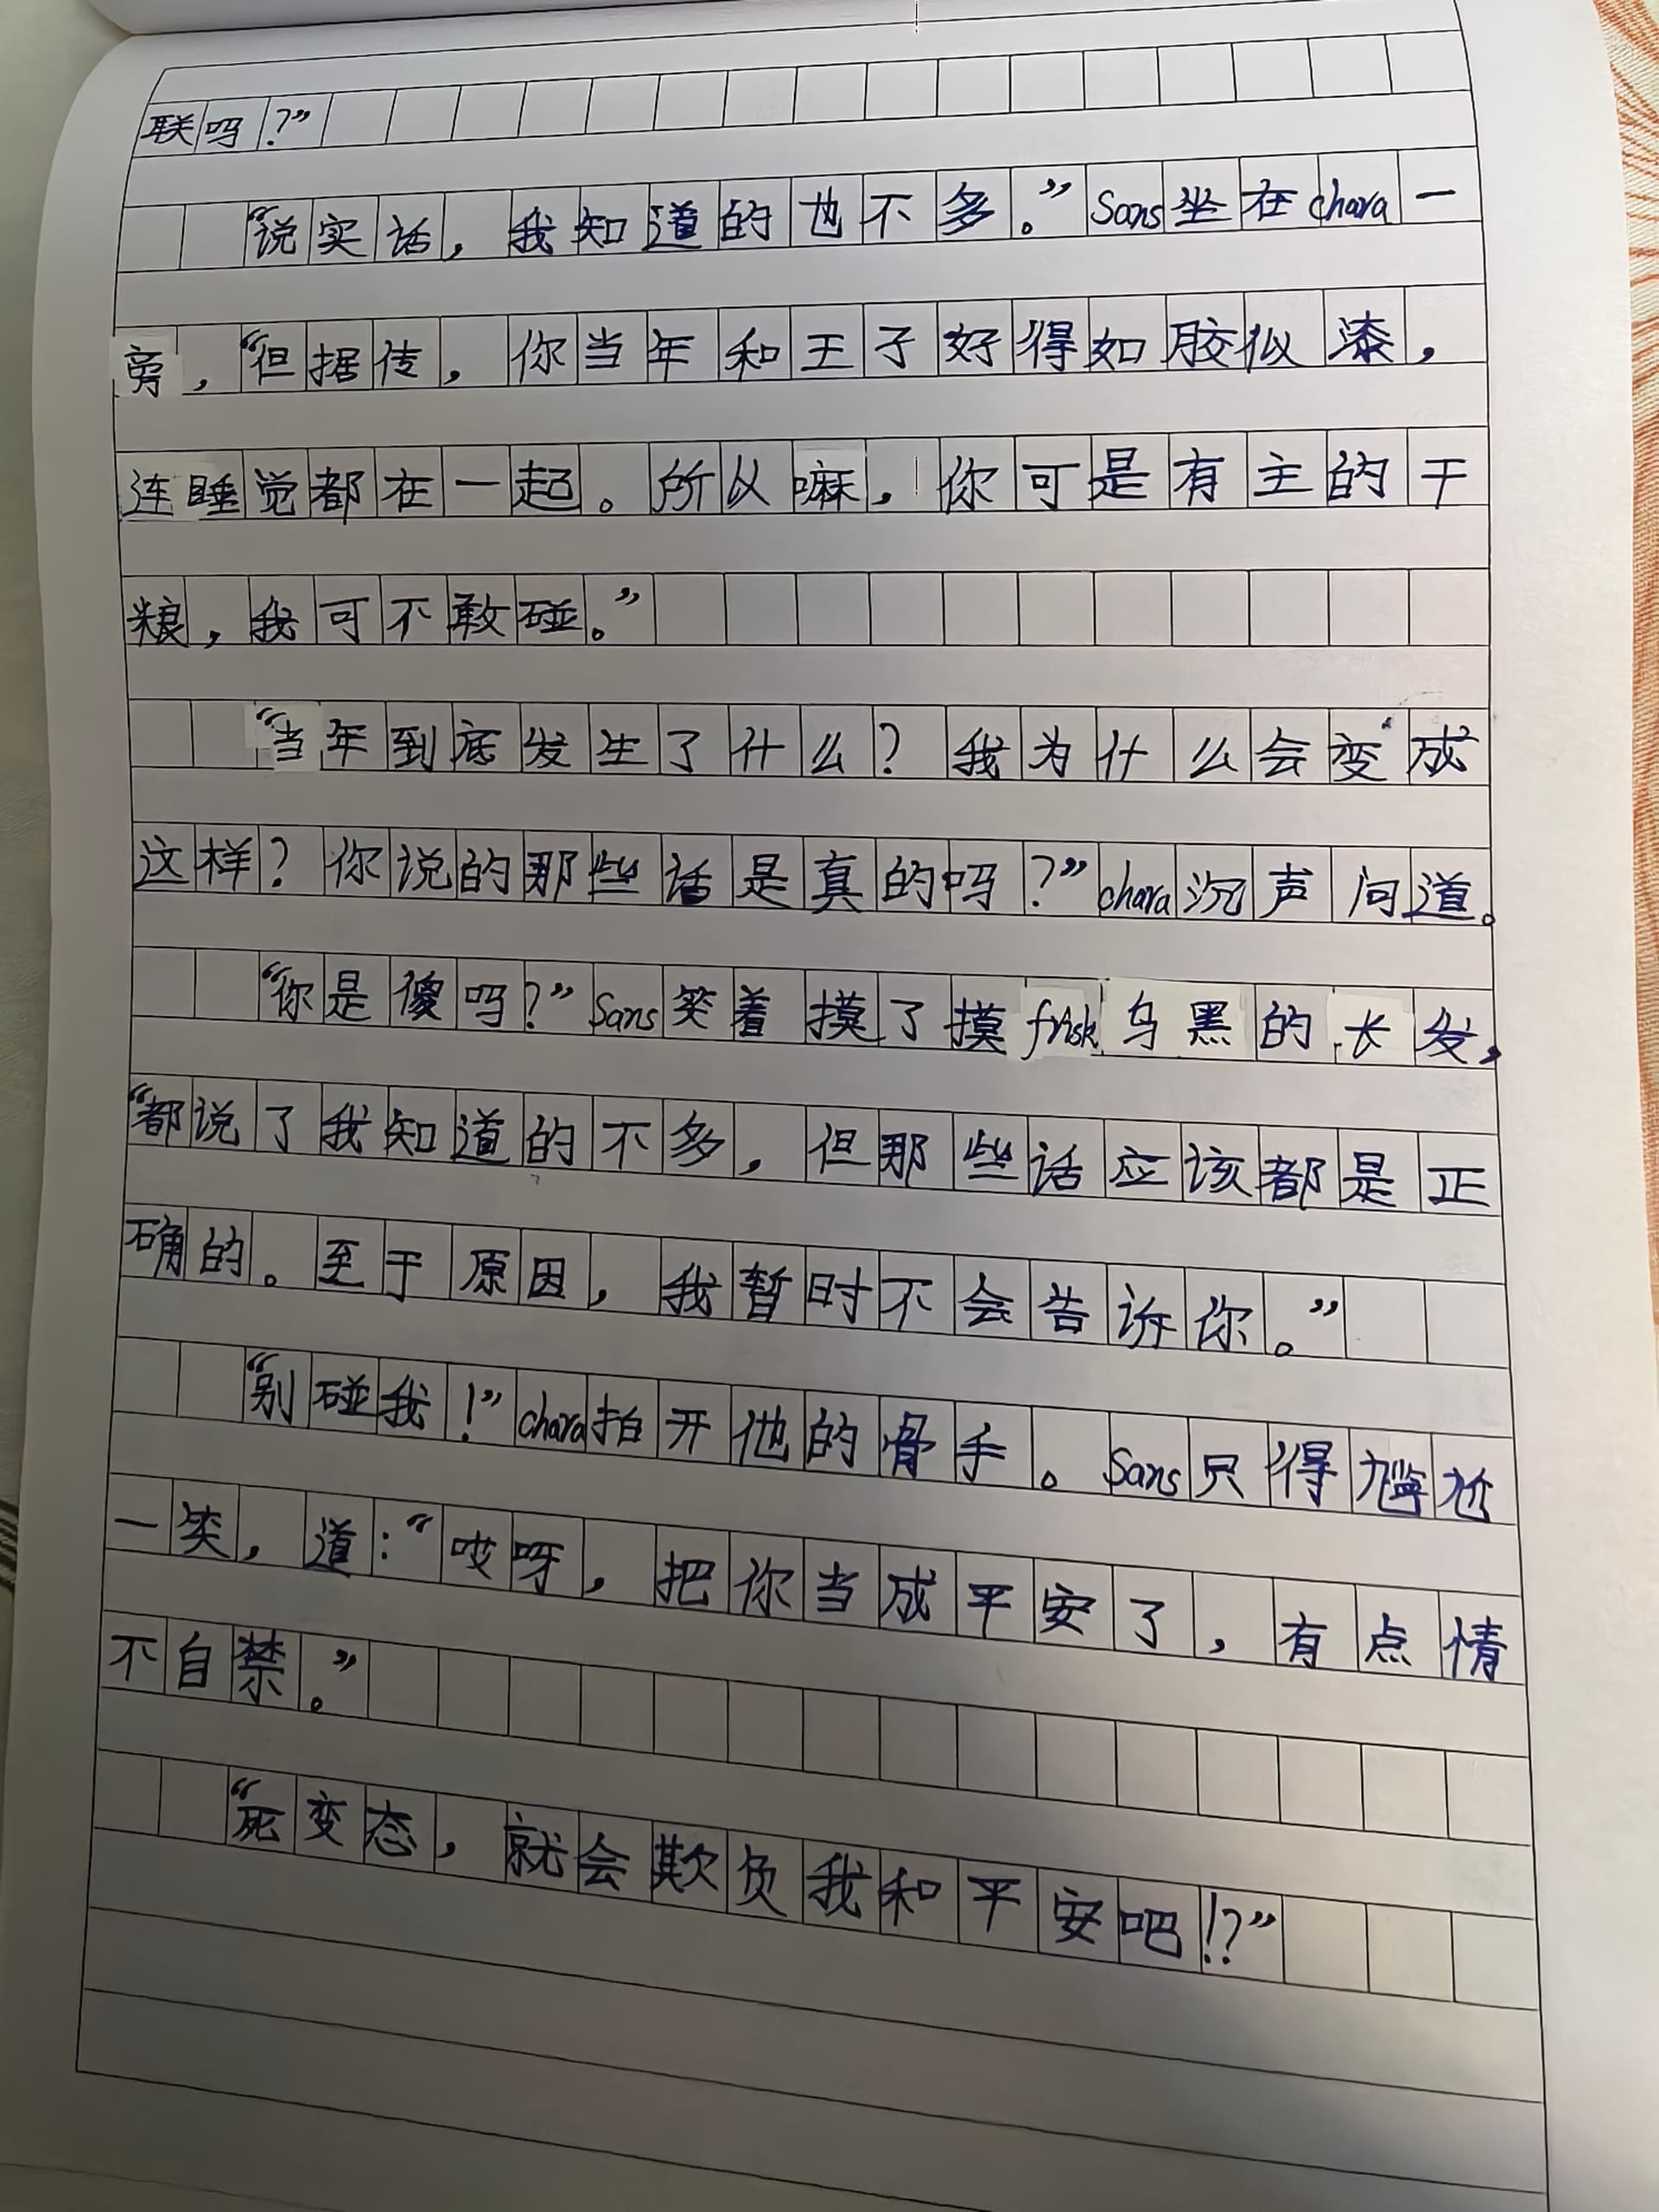 联吗?”
“说实话，我知道的也不多。”Sans坐在chara一
旁，“但据传，你当年和王子好得如胶似漆，
连睡觉都在一起。所以嘛，你可是有主的干
粮，我可不敢碰。”
“当年到底发生了什么？我为什么会变成
这样？你说的那些话是真的吗?”chara沉声问道。
“你是傻吗?”Sans笑着摸了摸frisk乌黑的长发，
“都说了我知道的不多，但那些话应该都是正
确的。至于原因，我暂时不会告诉你。”
“别碰我！”chara拍开他的骨手。Sans只得尴尬
一笑，道：“哎呀，把你当成平安了，有点情
不自禁。”
“死变态，就会欺负我和平安吧!?”